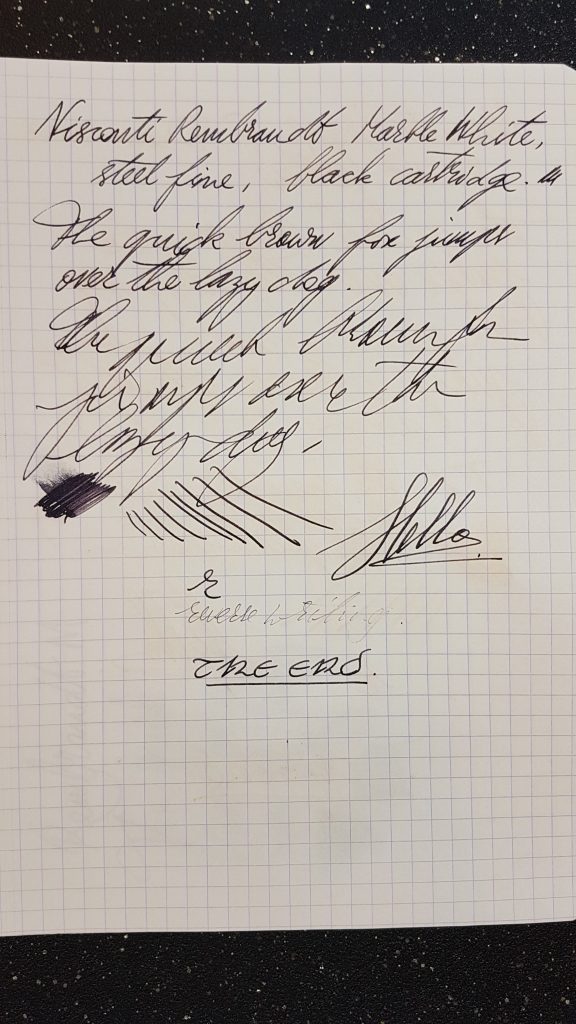 Visconti Rembrandt Marble White,
steel fine, black cartridge.
The quick brown fox jumps
over the lazy dog.
The quick brown fox
jumps over the
lazy dog,
Hello.
r
reverse writing.
THE END.